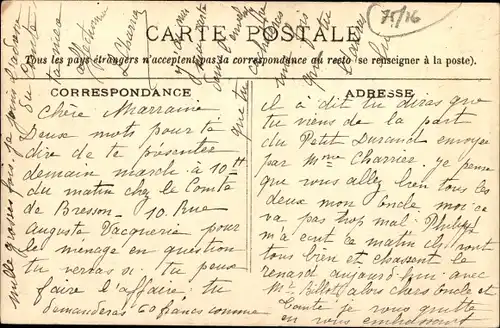 75/16
CARTE POSTALE
Tous les pays étrangers n'acceptent pas la correspondance au recto (se renseigner à la poste).
CORRESPONDANCE
Chère Marraine
Deux mots pour te
dire de te présenter
demain mardi à 10H
du matin chez le Comte
de Bresson - 10. Rue
Auguste Vacquerie pour
le ménage en question
tu verras si tu peux
faire l'affaire: tu
demanderas 60 francs comme
ADRESSE
il a dit tu diras que
tu viens de la part
du Petit Durand envoyé
par Mme Charrier. je pense
que vous allez bien tous les
deux mon Oncle moi ça
va pas trop mal. Philippe
m'a écrit ce matin ils vont
tous bien et chassent le
renard aujourd'hui avec
Mr Billot alors chers Oncle et
Tante je vous quitte
en vous embrassant
mille grosses fois je suis
affectionné
que tu